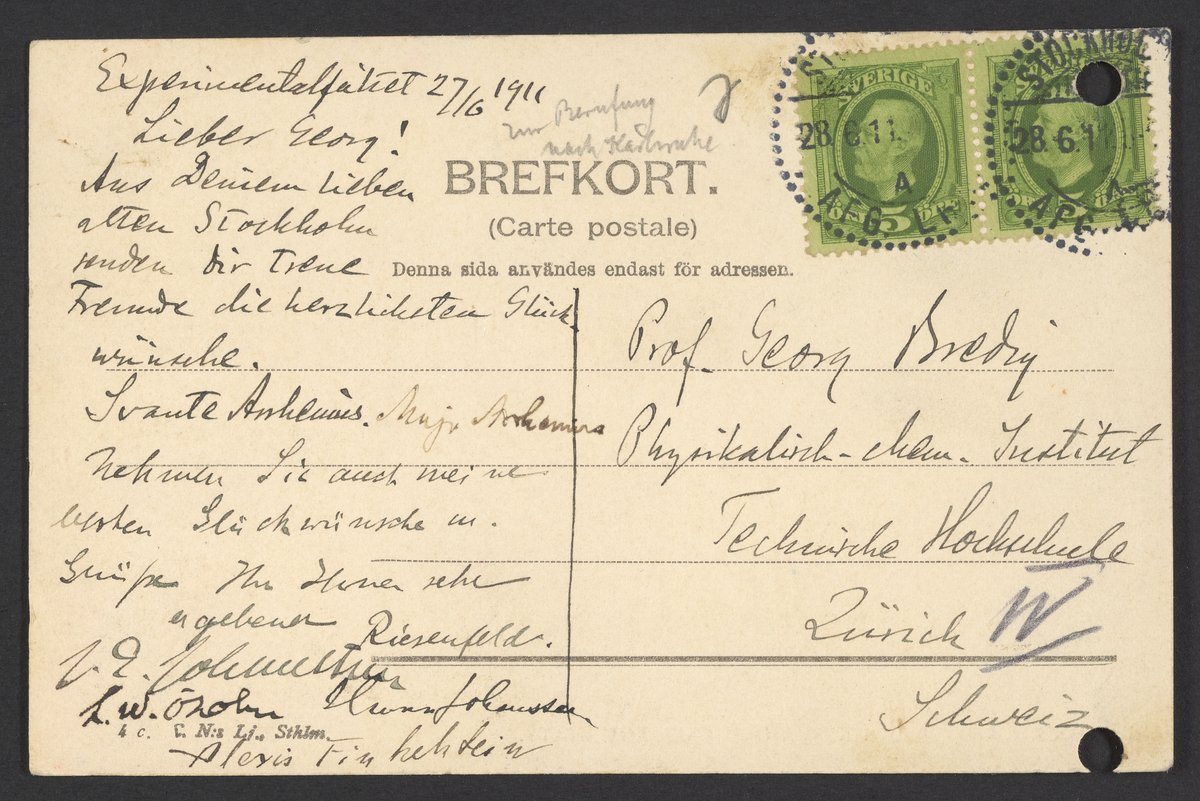 Experimentalfältet 27/6 1911
Lieber Georg!
Aus Deinem lieben
alten Stockholm
senden dir treue
Freunde die herzlichsten Glück-
wünsche.
Svante Arrhenius. Maja Arrhenius
Nehmen Sie auch meine
besten Glückwünsche u.
Grüße Ihr Ihnen sehr
ergebener Riesenfeld.
L. W. Öholm
Alexis Finkelstein
4 c. C. N:s Lj., Sthlm.
zur Berufung
nach Karlsruhe
BREFKORT.
(Carte postale)
Denna sida användes endast för adressen.
SVERIGE
5
STOCKHOL
28.6.11.
A
AFG. LP
STOCKHOL
28.6.11.
A
AFG. LP
Prof. Georg Bredig
Physikalisch-chem. Institut
Technische Hochschule
Zürich IV
Schweiz